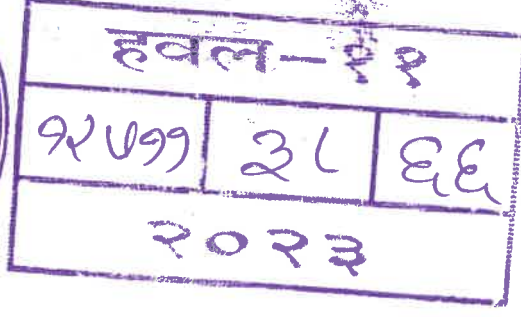 हवल-११
१२५११ ३८ ६६
२०२३